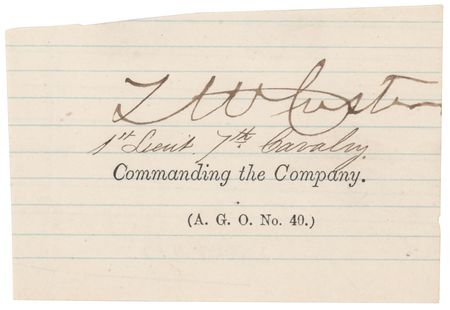 T W Custer
1st Lieut. 7th Cavalry
Commanding the Company.
(A. G. O. No. 40.)